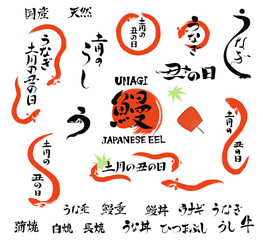 国産 天然
うなぎ
土用の丑の日
土用の
うし
土用の
丑の日
うなぎ
丑の日
うなぎ
う
UNAGI
鰻
JAPANESE EEL
土用の
丑の日
土用の丑の日
土用の
丑の日
うな重 鰻重 鰻丼 ウナギ うなぎ
蒲焼 白焼 長焼 うな丼 ひつまぶし うし 牛